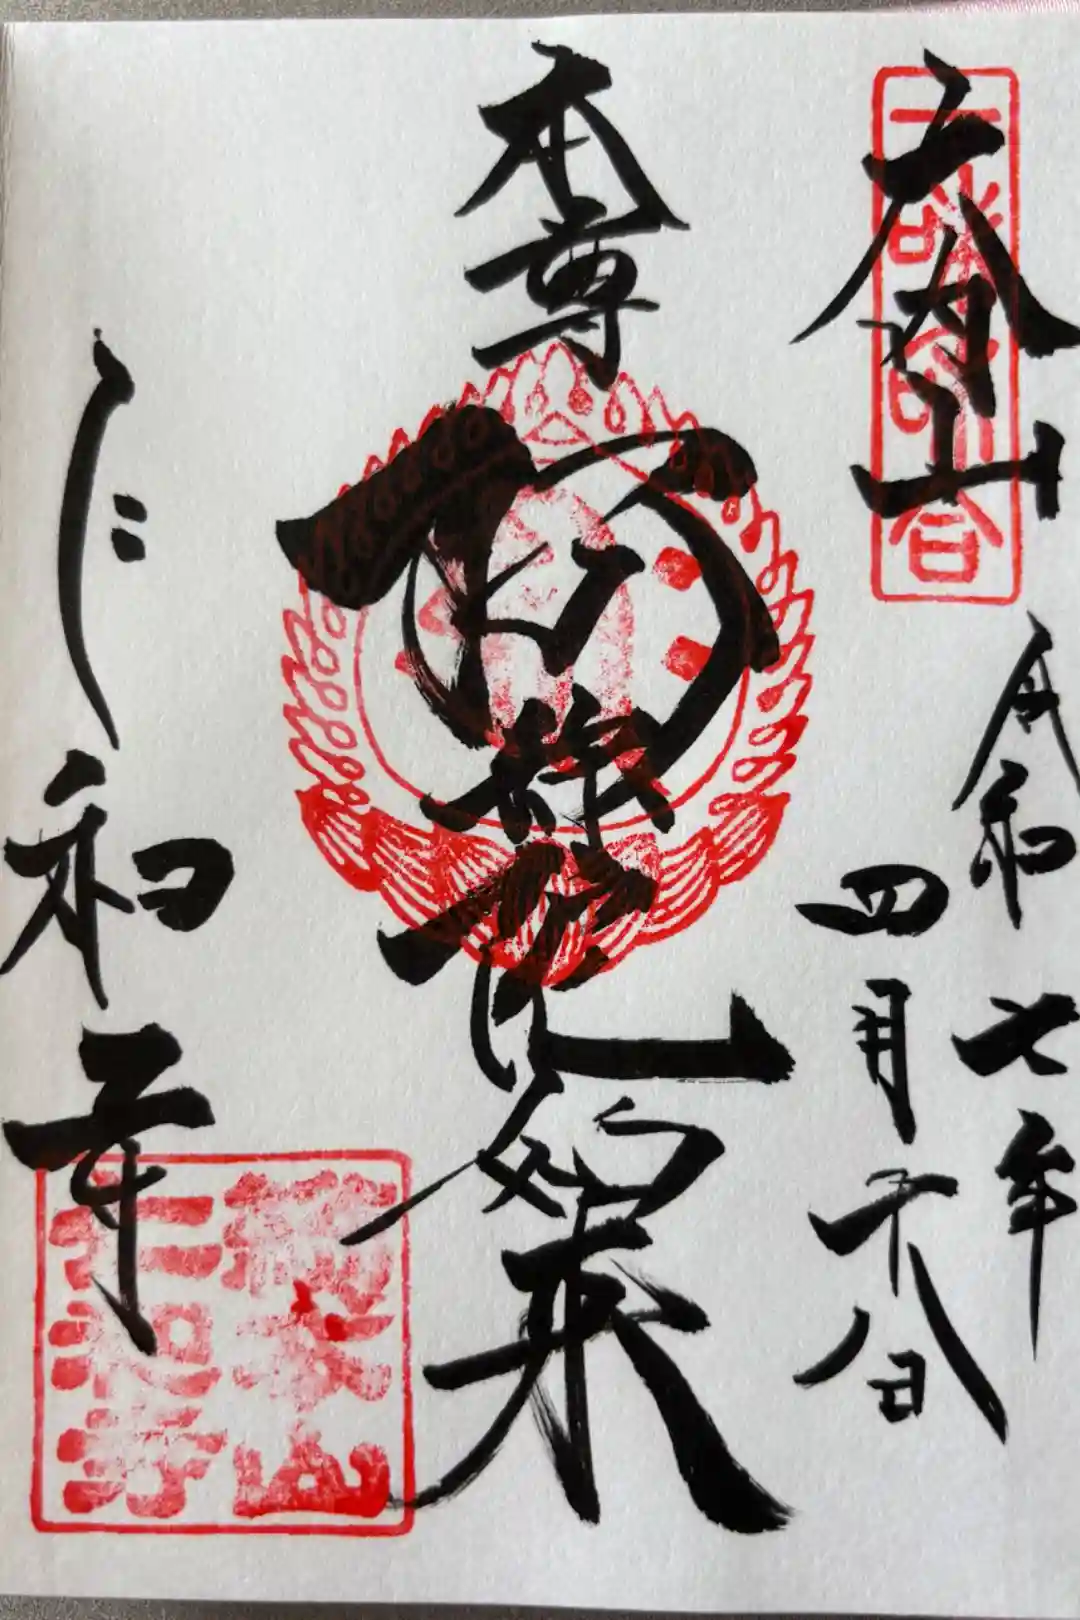 大内山
令和七年
四月二十八日
本尊
阿弥陀如来
仁和寺
総本山
仁和寺